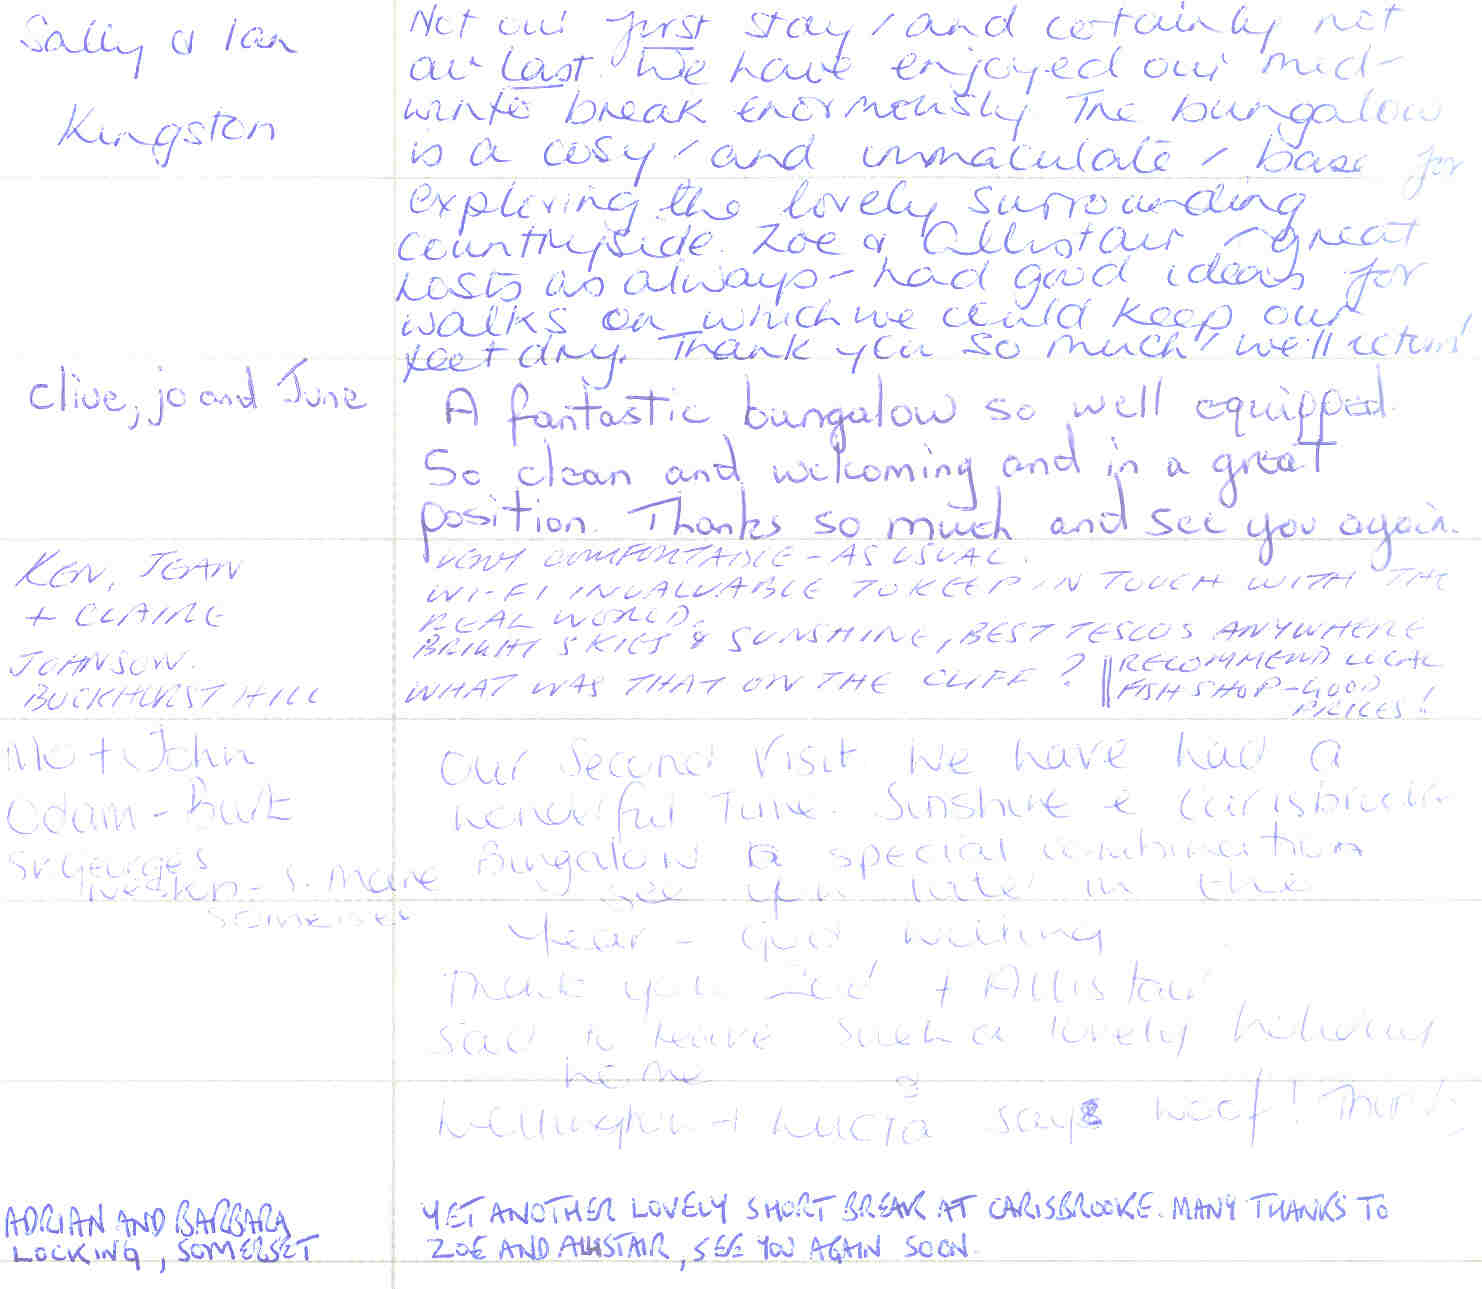 Sally & Ian
Kingston
Not our first stay, and certainly not
our last. We have enjoyed our mid-
winter break enormously. The bungalow
is a cosy, and immaculate, base for
exploring the lovely surrounding
countryside. Zoe & Allistair - great
hosts as always - had good ideas for
walks on which we could keep our
feet dry. Thank you so much, we'll return!
Clive, jo and June
A fantastic bungalow so well equipped.
So clean and welcoming and in a great
position. Thanks so much and see you again.
KEN, JEAN
+ CLAIRE
JOHNSON.
BUCKHURST HILL
VERY COMFORTABLE - AS USUAL.
WI-FI INVALUABLE TO KEEP IN TOUCH WITH THE
REAL WORLD.
BRIGHT SKIES & SUNSHINE, BEST TESCOS ANYWHERE
WHAT WAS THAT ON THE CLIFF? || RECOMMEND LOCAL
FISH SHOP - GOOD
PRICES!
Mo + John
Odam - Burt
St Georges
Weston - S. Mare
Somerset
Our Second Visit We have had a
wonderful Time. Sunshine & Carisbrooke
Bungalow a special combination
See you later in the
Year - God willing
Thank you Zoe + Allistair
Sad to leave Such a lovely holiday
home
Wellington + Lucia says woof! Thanks
ADRIAN AND BARBARA
LOCKING, SOMERSET
YET ANOTHER LOVELY SHORT BREAK AT CARISBROOKE. MANY THANKS TO
ZOE AND ALLISTAIR, SEE YOU AGAIN SOON.